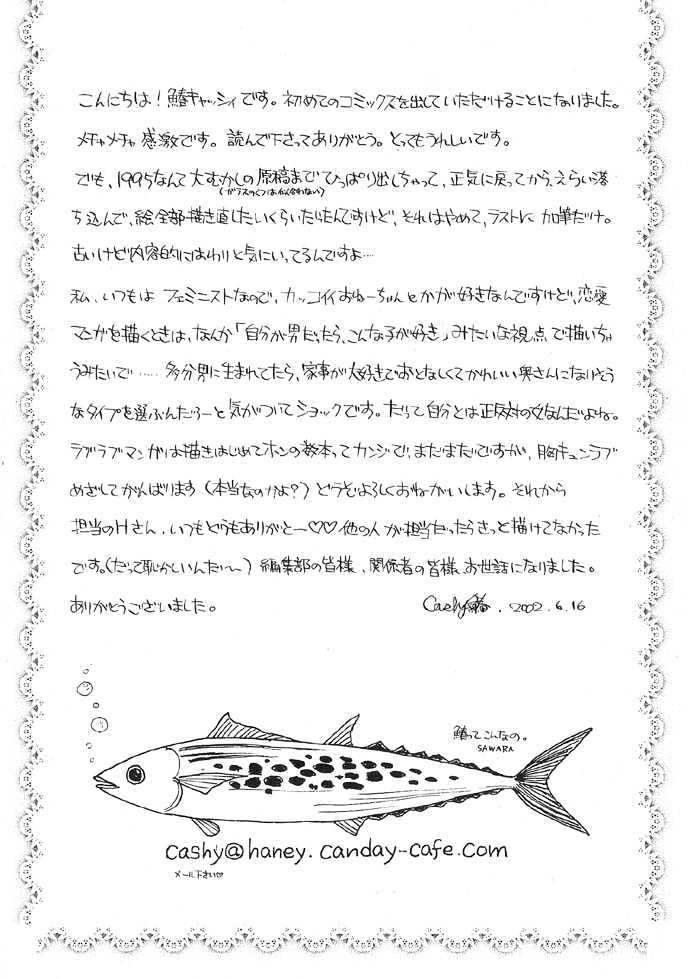 こんにちは！鰆キャッシィです。初めてのコミックスを出していただけることになりました。
メチャメチャ感激です。読んで下さってありがとう。とってもうれしいです。
でも、1995なんて大むかしの原稿までひっぱり出しちゃって、正気に戻ってから、えらい落
(ガラスのくつは似合わない)
ち込んで、絵全部描き直したいくらいだったんですけど、それはやめて、ラストに加筆だけ。
古いけど内容的にはわりと気にいってるんですよ…
私、いつもは フェミニストなので、カッコイイおねーちゃんとかが好きなんですけど、恋愛
マンガを描くときは、なんか「自分が男だったら、こんな子が好き」みたいな視点で描いちゃ
うみたいで…… 多分男に生まれてたら、家事が大好きでおとなしくてかわいい奥さんになりそう
なタイプを選ぶんだろーと気がついてショックです。だって自分とは正反対の女なんだよね。
ラブラブマンガは描きはじめてホンの数本ってカンジで、まだまだですが、胸キュンラブ
めざしてがんばります（本当なのかよ？）どうぞよろしくおねがいします。それから
担当のHさん、いつもどうもありがとー♡♡他の人が担当だったらきっと描けてなかった
です。（だって恥かしいんだ〜）編集部の皆様、関係者の皆様、お世話になりました。
ありがとうございました。
Cashy鰆. 2002.6.16
鰆ってこんなの。
SAWARA
cashy@haney.canday-cafe.com
メール下さい♡